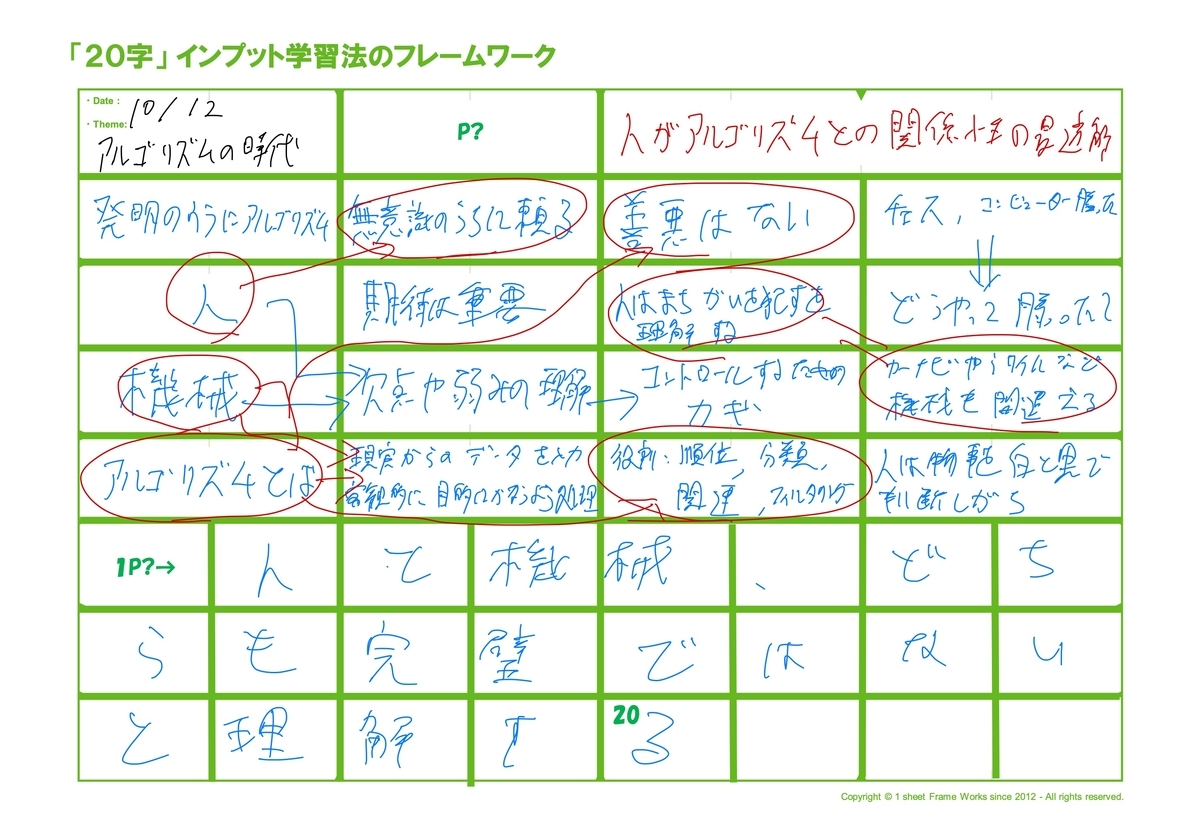 「２０字」インプット学習法のフレームワーク
・Date： 10/12
・Theme: アルゴリズムの時代
P?
人がアルゴリズムとの関係性の最適解
発明のようにアルゴリズム
無意識のうちに頼る
善悪はない
チェス，コンピューター勝った
人
期待は重要
人はまちがいを犯すを
理解する
どうやって勝ったって
機械
欠点や弱みの理解
コントロールするための
カギ
カーナビやらワイルなど
機械も間違える
アルゴリズムとは
現実からのデータを入力
客観的に目的にかなうよう処理
役割：順位，分類，
関連，フィルタリング
人は物事を白と黒で
判断しがち
1P?→
人と機械、どち
らも完璧ではない
と理解す
20
る
Copyright © 1 sheet Frame Works since 2012 - All rights reserved.